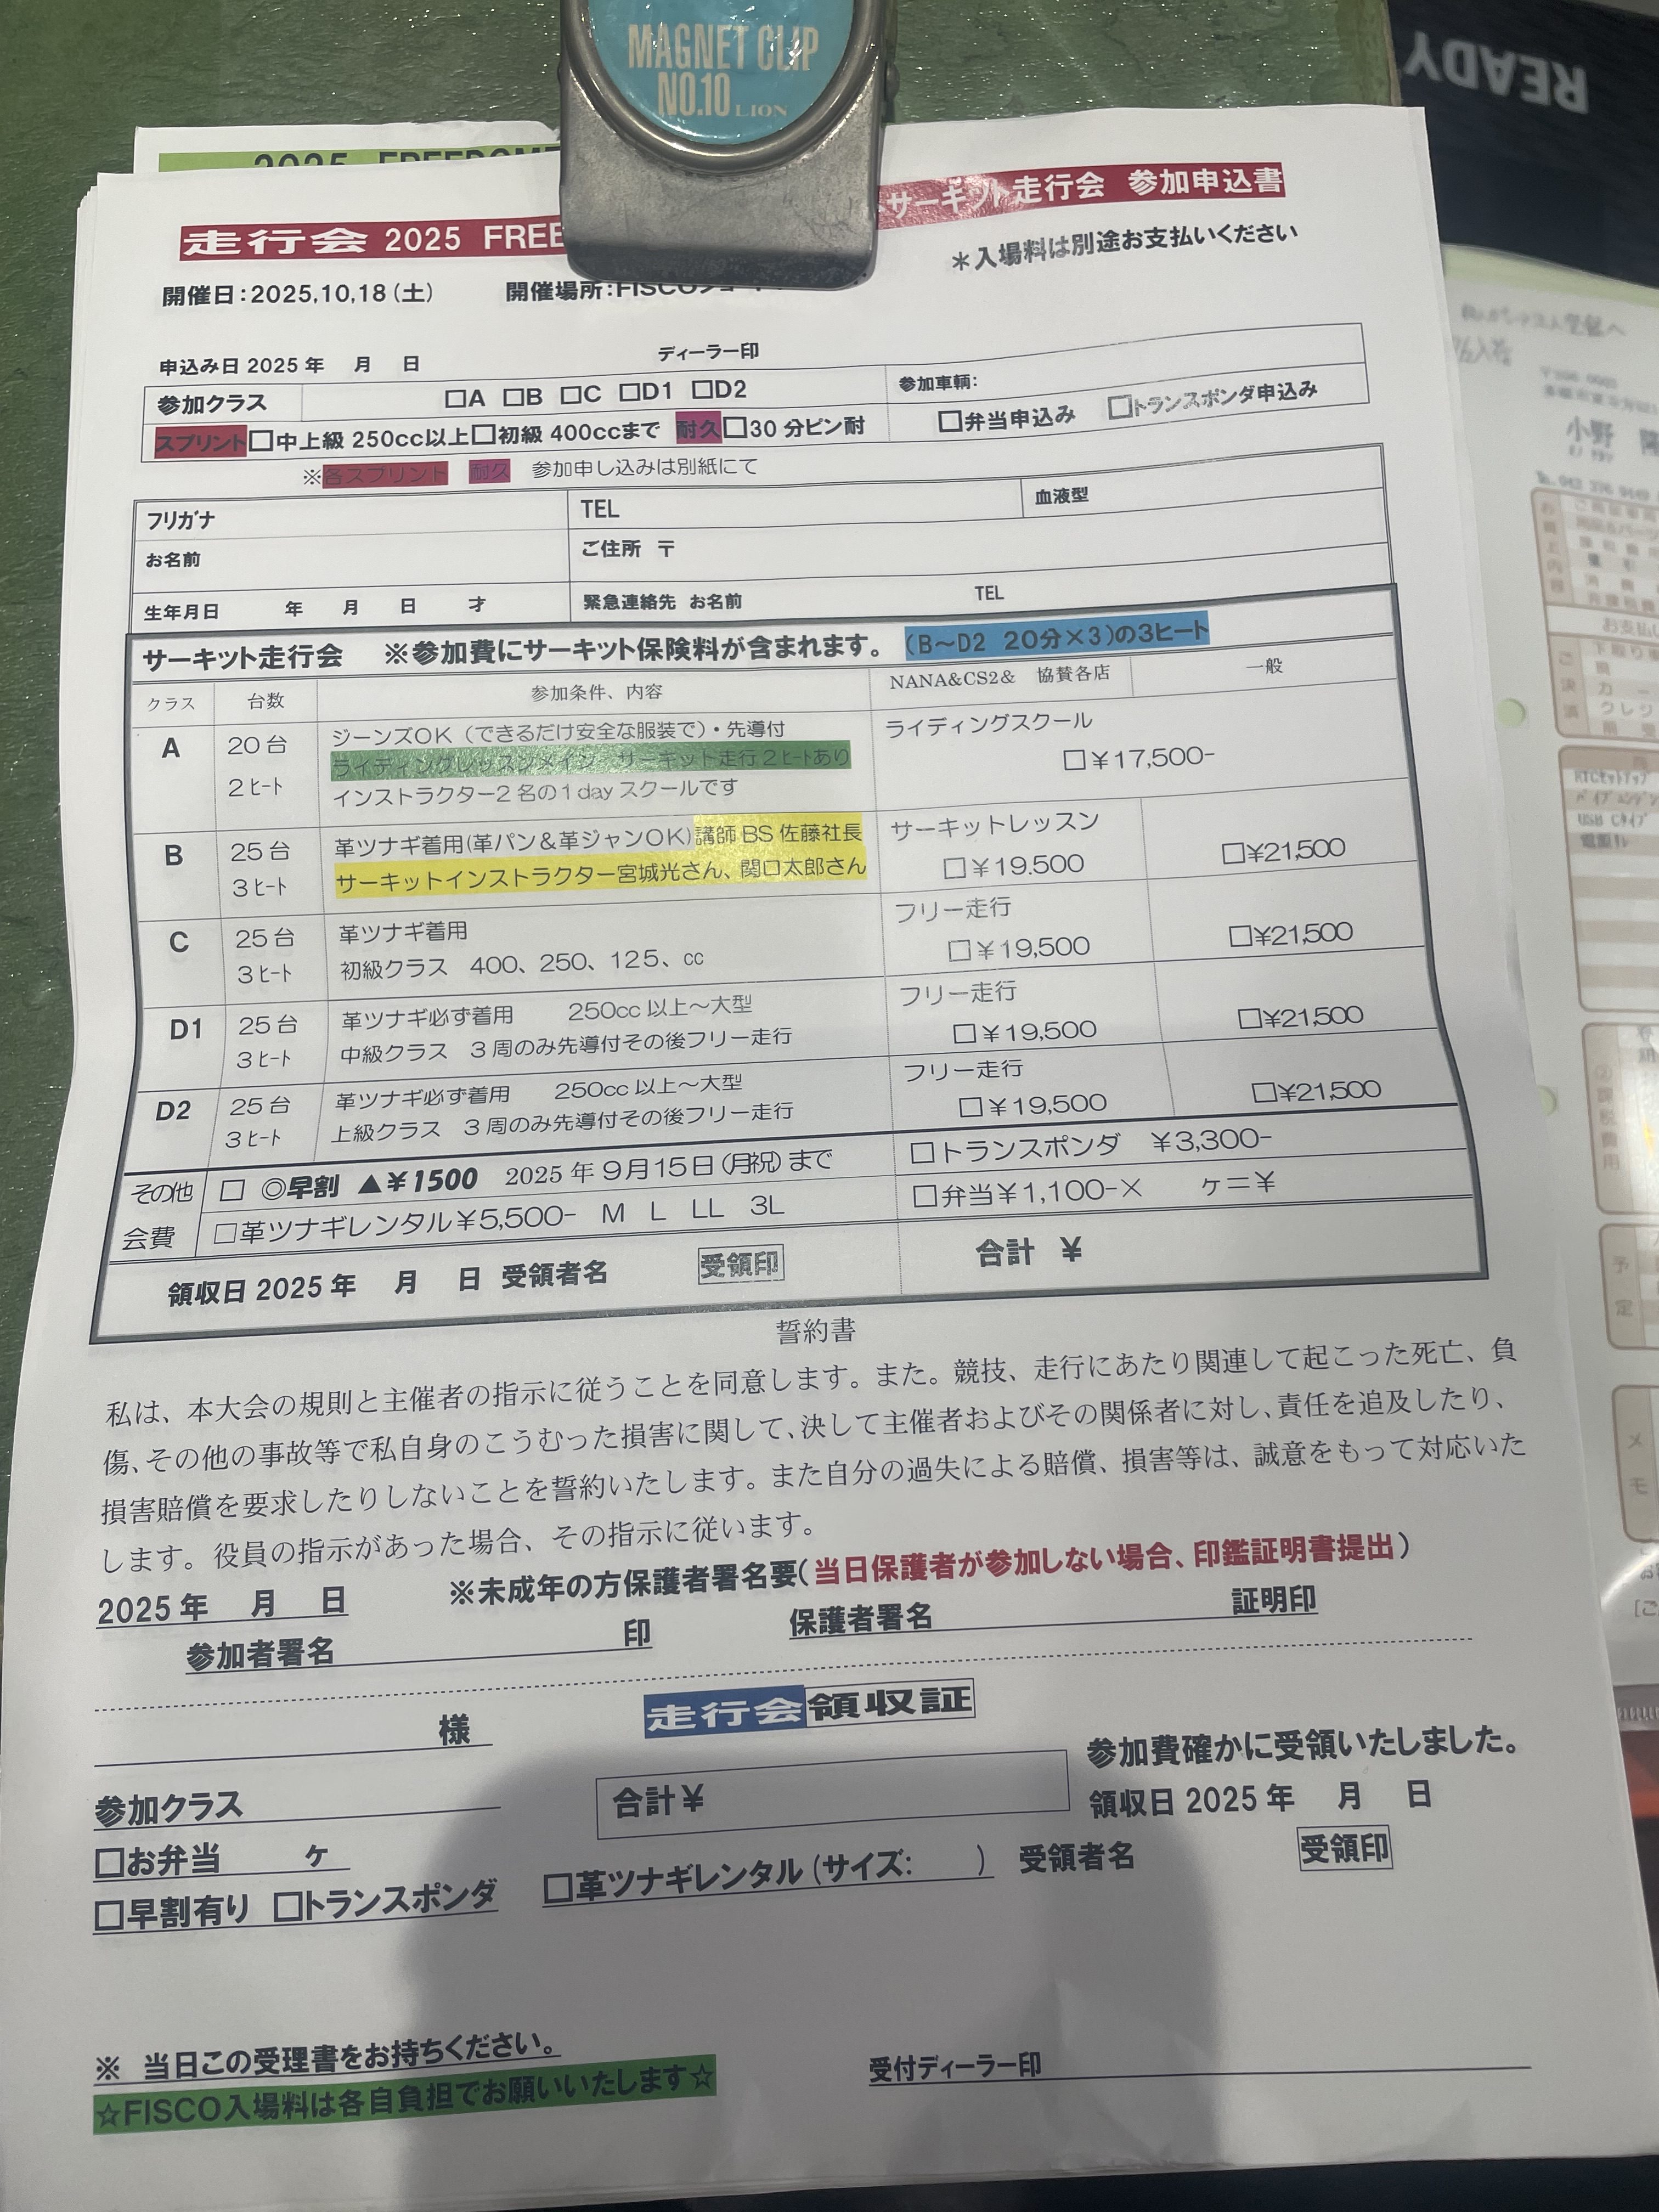 MAGNET CLIP
NO.10 LION
READY
走行会 2025 FREE
サーキット走行会 参加申込書
＊入場料は別途お支払いください
開催日：2025,10,18（土） 開催場所：FISCOショート
申込み日 2025 年 月 日 ディーラー印
参加クラス □A □B □C □D1 □D2 参加車輌：
スプリント□中上級 250cc以上□初級 400ccまで 耐久□30 分ピン耐 □弁当申込み □トランスポンダ申込み
※各スプリント 耐久 参加申し込みは別紙にて
フリガナ TEL 血液型
お名前 ご住所 〒
生年月日 年 月 日 才 緊急連絡先 お名前 TEL
サーキット走行会 ※参加費にサーキット保険料が含まれます。 （B～D2 20分×3）の3ヒート
クラス 台数 参加条件、内容 NANA&CS2& 協賛各店 一般
A 20 台 ジーンズOK（できるだけ安全な服装で）・先導付 ライディングスクール
ライディングレッスンメイン サーキット走行２ヒートあり □￥17,500-
2 ヒート インストラクター２名の１day スクールです
B 25 台 革ツナギ着用(革パン＆革ジャンOK)講師 BS 佐藤社長 サーキットレッスン
3 ヒート サーキットインストラクター宮城光さん、関口太郎さん □￥19.500 □¥21,500
C 25 台 革ツナギ着用 フリー走行
3 ヒート 初級クラス 400、250、125、cc □￥19,500 □¥21,500
D1 25 台 革ツナギ必ず着用 250cc 以上～大型 フリー走行
3 ヒート 中級クラス ３周のみ先導付その後フリー走行 □￥19,500 □¥21,500
D2 25 台 革ツナギ必ず着用 250cc 以上～大型 フリー走行
3 ヒート 上級クラス ３周のみ先導付その後フリー走行 □￥19,500 □¥21,500
その他 □ ◎早割 ▲￥1500 2025 年 9月15日（月祝）まで □トランスポンダ ￥3,300-
会費 □革ツナギレンタル￥5,500- M L LL 3L □弁当￥1,100-× ヶ＝￥
領収日 2025 年 月 日 受領者名 受領印 合計 ￥
誓約書
私は、本大会の規則と主催者の指示に従うことを同意します。また。競技、走行にあたり関連して起こった死亡、負
傷、その他の事故等で私自身のこうむった損害に関して、決して主催者およびその関係者に対し、責任を追及したり、
損害賠償を要求したりしないことを誓約いたします。また自分の過失による賠償、損害等は、誠意をもって対応いた
します。役員の指示があった場合、その指示に従います。
2025 年 月 日 ※未成年の方保護者署名要（当日保護者が参加しない場合、印鑑証明書提出）
参加者署名 印 保護者署名 証明印
走行会領収証
様 参加費確かに受領いたしました。
参加クラス 合計￥ 領収日 2025 年 月 日
□お弁当 ヶ
□早割有り □トランスポンダ □革ツナギレンタル（サイズ： ） 受領者名 受領印
※ 当日この受理書をお持ちください。
☆FISCO入場料は各自負担でお願いいたします☆
受付ディーラー印
小野
メモ
予定